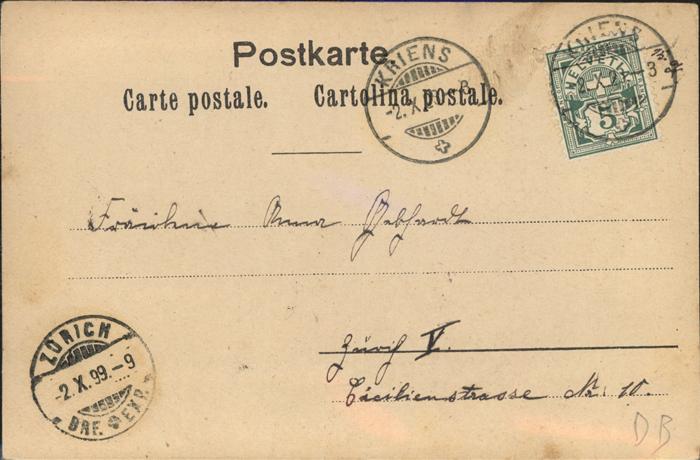 Postkarte
Carte postale. Cartolina postale.
KRIENS
-2.X.
KRIENS
HELVETIA
5
Fräulein Anna Gebhardt
Zürich V.
Cäcilienstrasse Nr. 10.
ZÜRICH
-2.X.99.-9
BRF. EXP.
DB